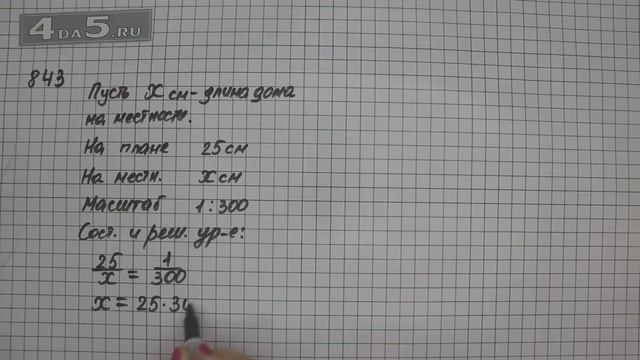 4ДА5.RU
843
Пусть x см - длина дома
на местности.
На плане 25 см
На местн. x см
Масштаб 1 : 300
Сост. и реш. ур-е:
25/x = 1/300
x = 25 · 30